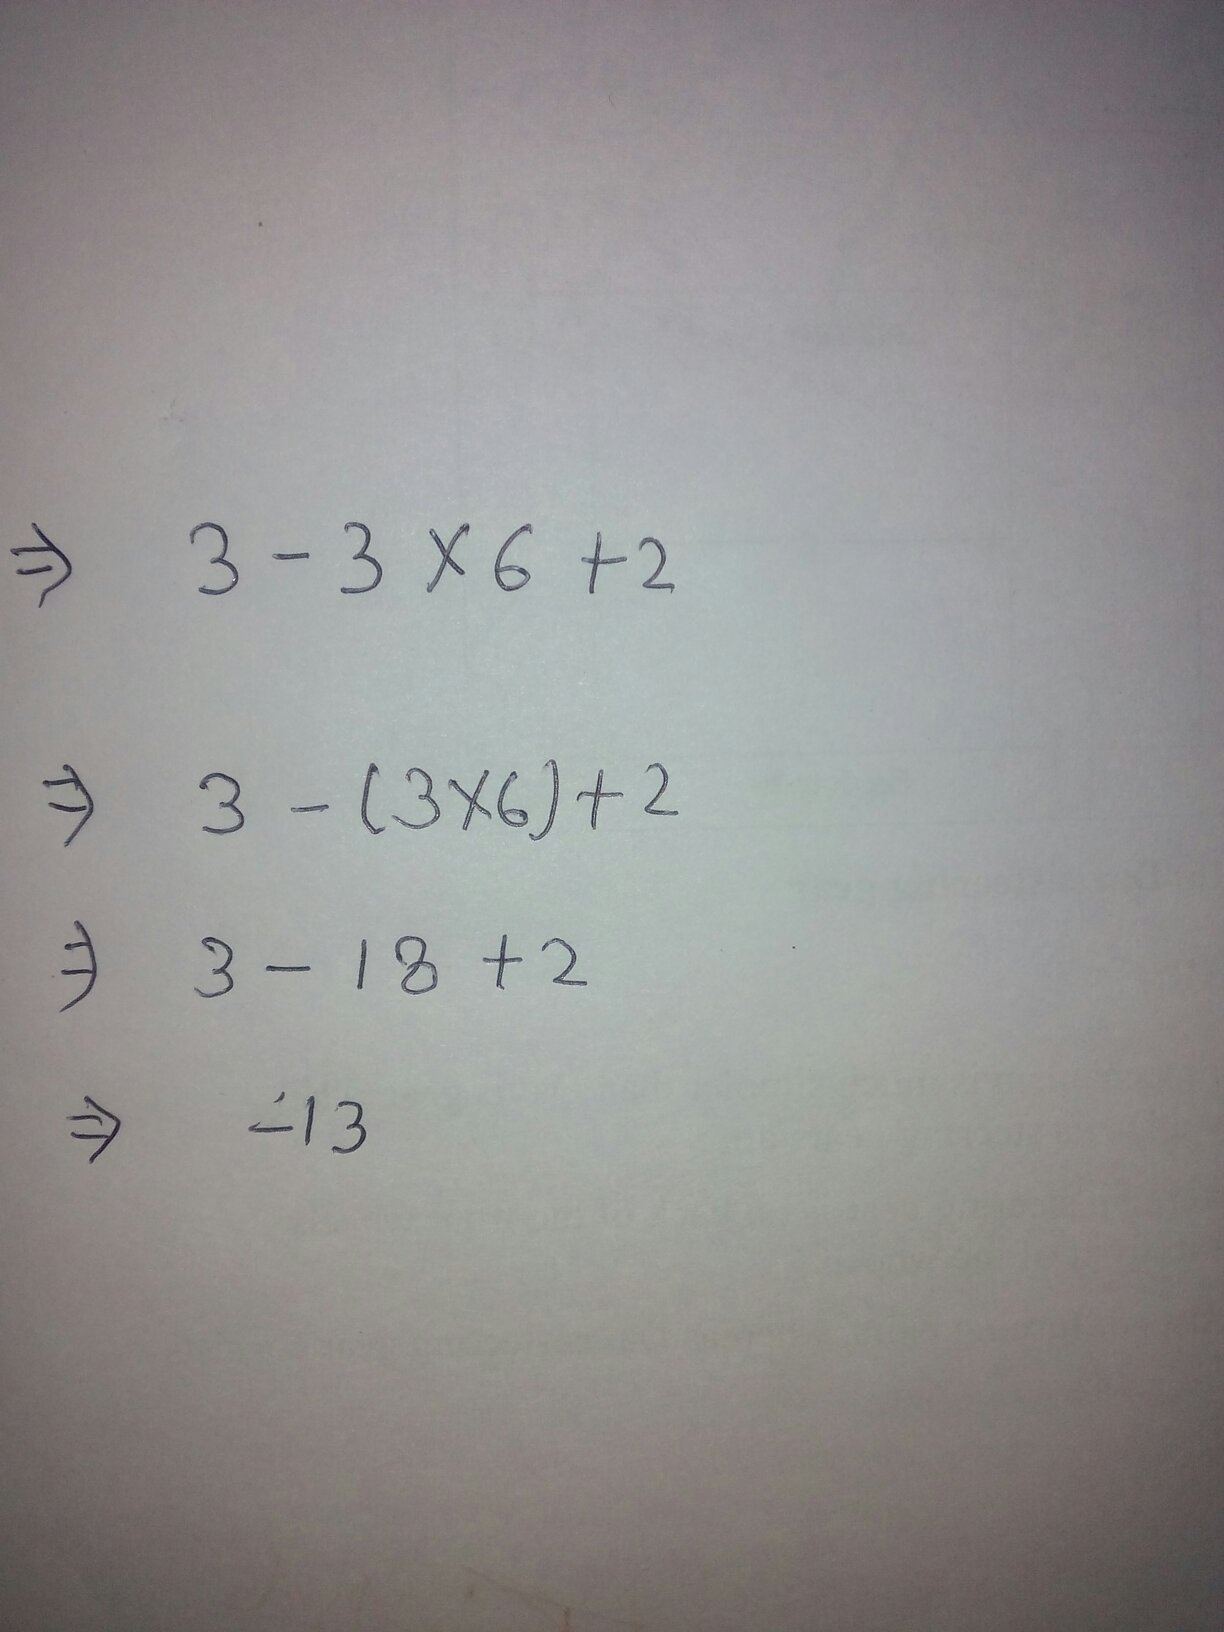 ⇒ 3 - 3 × 6 + 2
⇒ 3 - (3×6) + 2
⇒ 3 - 18 + 2
⇒ -13